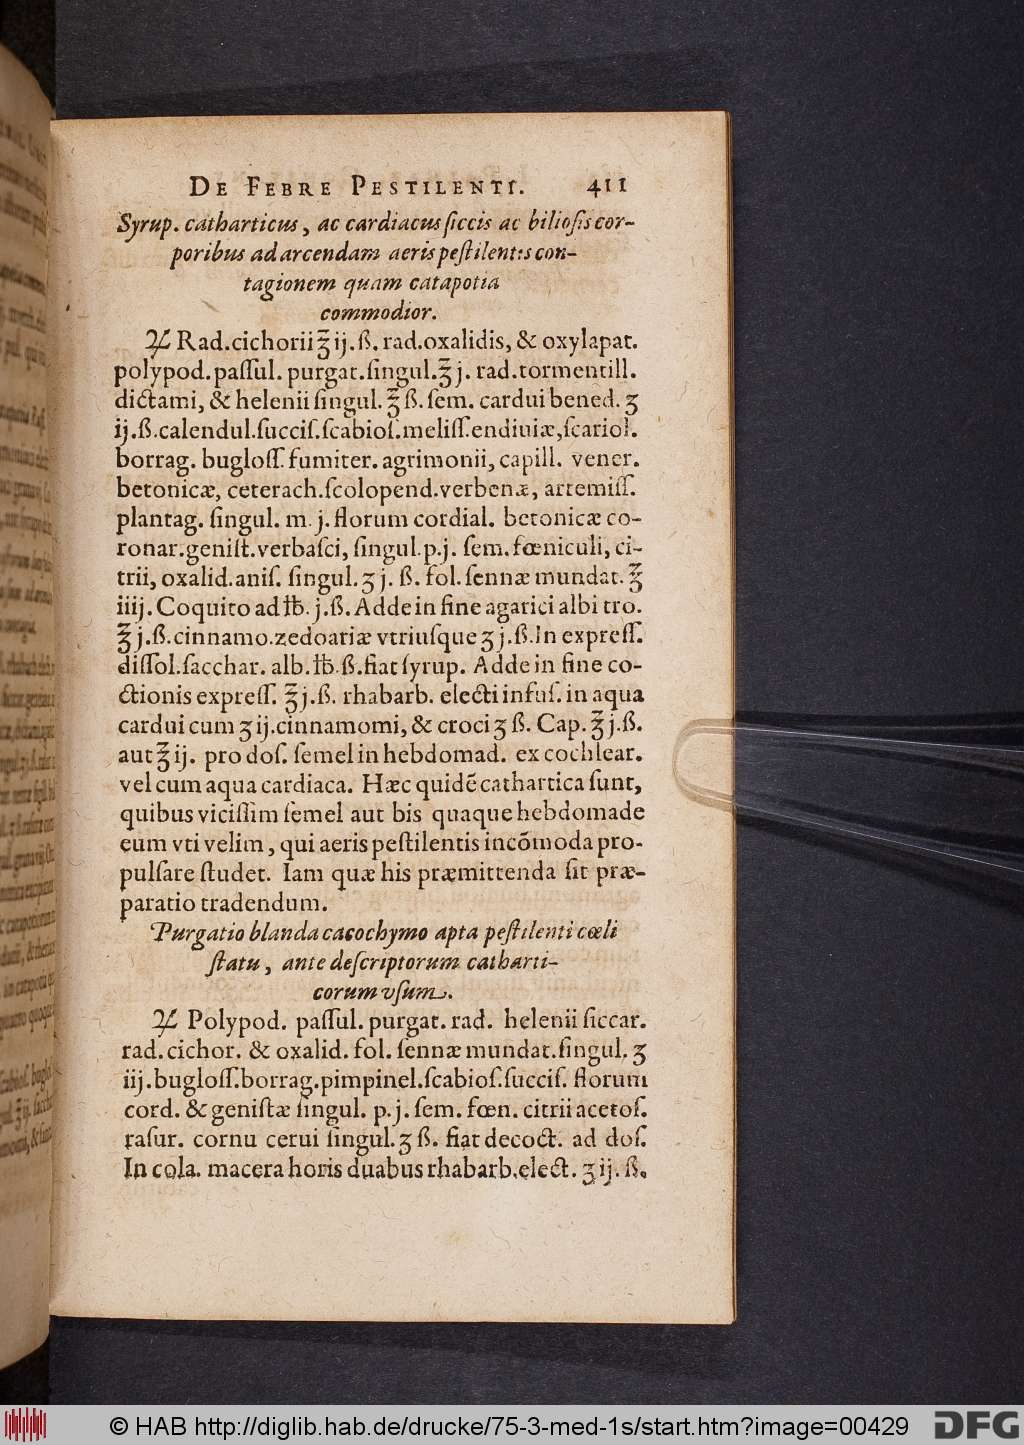 DE FEBRE PESTILENTI. 411
Syrup. catharticus, ac cardiacus ſiccis ac bilioſis cor-
poribus ad arcendam aeris peſtilentis con-
tagionem quam catapotia
commodior.
℞ Rad.cichorii ℥ ij. ß. rad.oxalidis, & oxylapat.
polypod. paſſul. purgat. ſingul. ℥ j. rad.tormentill.
dictami, & helenii ſingul. ℥ ß. ſem. cardui bened. ʒ
ij.ß.calendul.ſucciſ.ſcabioſ.meliſſ.endiuiæ,ſcariol.
borrag. bugloſſ. fumiter. agrimonii, capill. vener.
betonicæ, ceterach.ſcolopend.verbenæ, artemiſſ.
plantag. ſingul. m. j. florum cordial. betonicæ co-
ronar.geniſt.verbaſci, ſingul.p.j. ſem. fœniculi, ci-
trii, oxalid.aniſ. ſingul. ʒ j. ß. fol. ſennæ mundat. ℥
iiij. Coquito ad ℔. j.ß. Adde in fine agarici albi tro.
℥ j.ß.cinnamo.zedoariæ vtriuſque ʒ j.ß.In expreſſ.
diſſol.ſacchar. alb. ℔. ß.fiat ſyrup. Adde in fine co-
ctionis expreſſ. ℥ j.ß. rhabarb. electi infuſ. in aqua
cardui cum ʒ ij.cinnamomi, & croci ʒ ß. Cap. ℥ j.ß.
aut ℥ ij. pro doſ. ſemel in hebdomad. ex cochlear.
vel cum aqua cardiaca. Hæc quidẽ cathartica ſunt,
quibus viciſſim ſemel aut bis quaque hebdomade
eum vti velim, qui aeris peſtilentis incõmoda pro-
pulſare ſtudet. Iam quæ his præmittenda ſit præ-
paratio tradendum.
Purgatio blanda cacochymo apta peſtilenti cœli
ſtatu, ante deſcriptorum catharti-
corum vſum.
℞ Polypod. paſſul. purgat. rad. helenii ſiccar.
rad. cichor. & oxalid. fol. ſennæ mundat.ſingul. ʒ
iij.bugloſſ.borrag.pimpinel.ſcabioſ.ſucciſ. florum
cord. & geniſtæ ſingul. p. j. ſem. fœn. citrii acetoſ.
raſur. cornu cerui ſingul. ʒ ß. fiat decoct. ad doſ.
In cola. macera horis duabus rhabarb.elect. ʒ ij. ß.
© HAB http://diglib.hab.de/drucke/75-3-med-1s/start.htm?image=00429
DFG